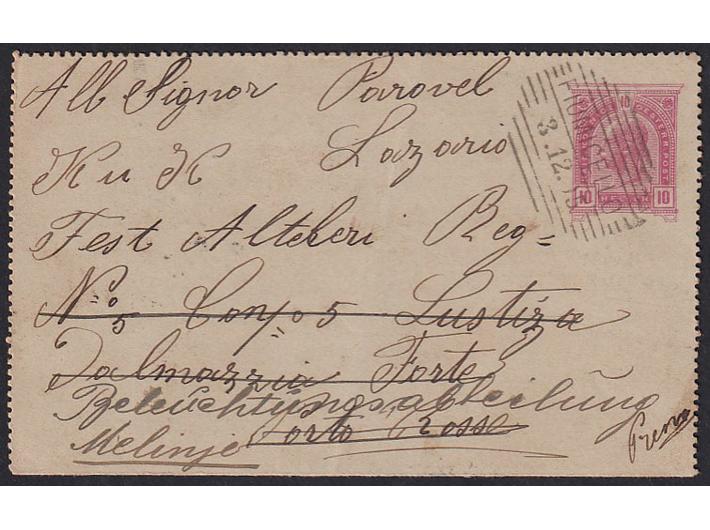 All Signor Parovel
Lazario
K u K
Fest Altcheri Reg=
No 5 Comp 5 Lustiza
Dalmazzia Forte
Beleuchtungsabteilung
Melinje Porto Rosse
3.12.
10
10 10